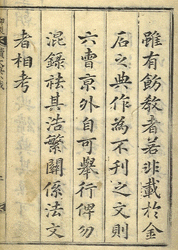 雖有飭教者若非載於金
石之典作為不刊之文則
六曺京外自可舉行俾勿
混錄祛其浩繁關係法文
者相考